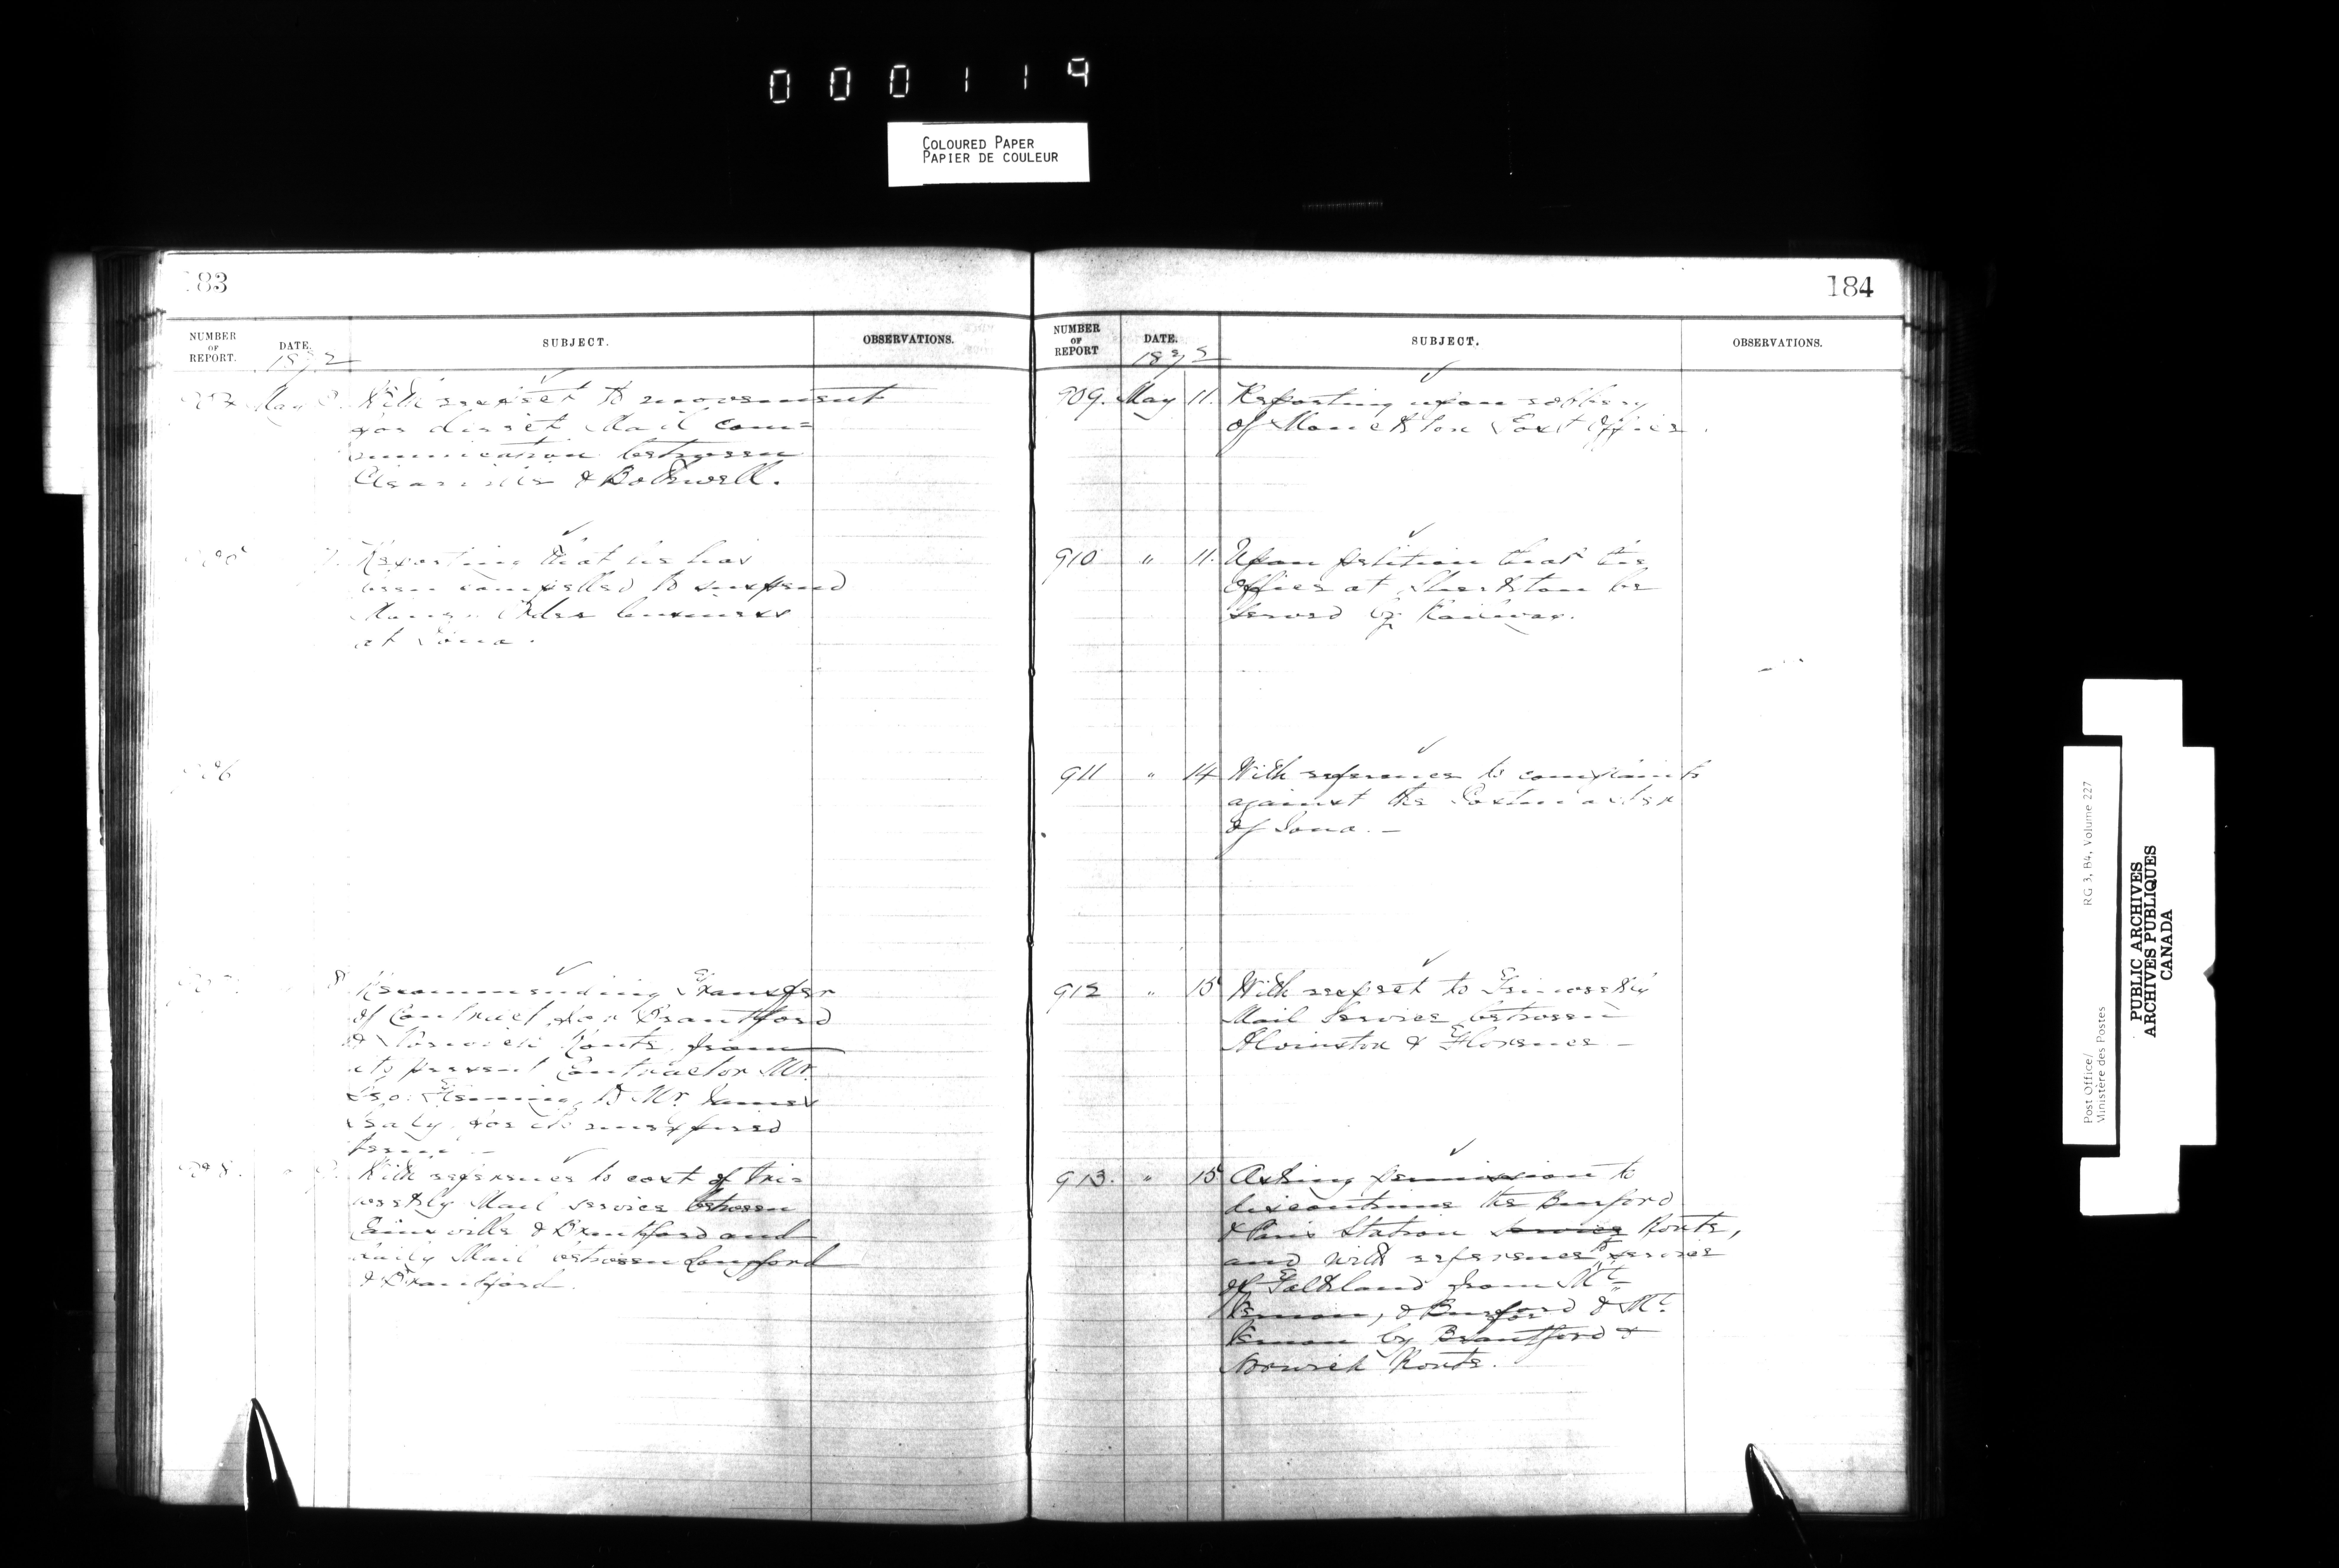 000119
COLOURED PAPER
PAPIER DE COULEUR
183
NUMBER OF REPORT.
DATE.
SUBJECT.
OBSERVATIONS.
1872
May
With respect to movement
for direct Mail com=
munication between
& Bothwell.
Reporting that he has
been compelled to suspend
Money Order business
at Iona.
906
8
Recommending Transfer
of Contract for Brantford
& Norwich Route, from
its present Contractor Mr.
Geo. Fleming, to Mr. James
for its unexpired
term.
908.
With reference to cost of tri=
weekly Mail service between
Cainsville & Brantford and
daily Mail between Langford
& Brantford.
184
NUMBER OF REPORT
DATE.
SUBJECT.
OBSERVATIONS.
1872
909. May 11. Reporting upon robbery
of Monckton Post Office.
910 " 11. Upon petition that the
Office at Sherkston be
served by Railway.
911 " 14 With reference to complaints
against the Postmaster
of Iona. —
912 " 15 With respect to Tri-weekly
Mail Service between
Alvinston & Florence —
913. " 15 Asking permission to
discontinue the Burford
& Paris Station service Route,
and with reference to service
of Falkland from Mt.
Vernon, & Burford & Mt.
Vernon by Brantford &
Norwich Route.
Post Office/
Ministère des Postes
RG 3, B4, Volume 227
PUBLIC ARCHIVES
ARCHIVES PUBLIQUES
CANADA